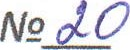 № 20